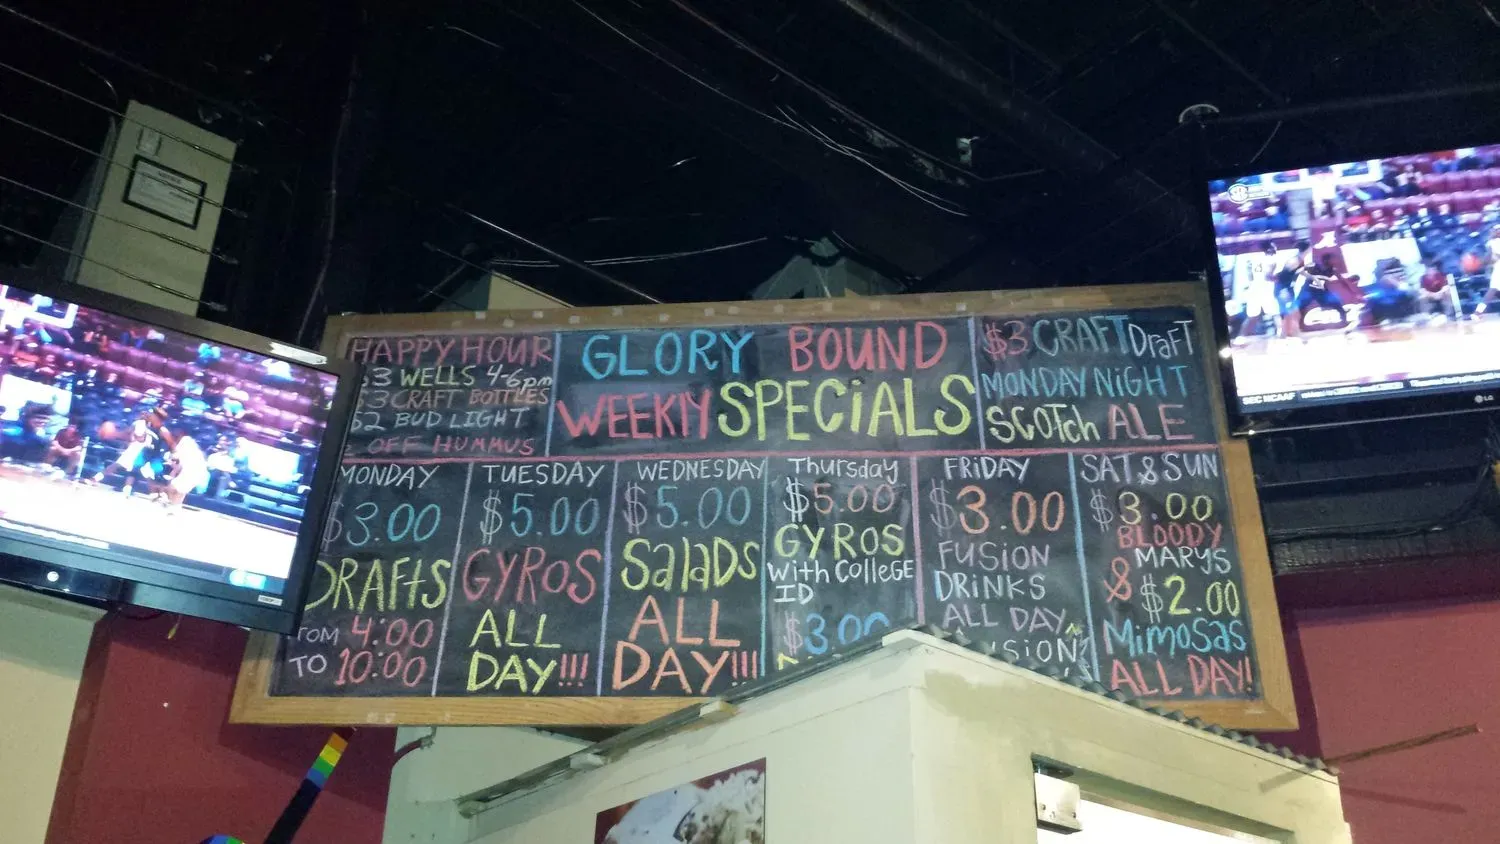 HAPPY HOUR
$3 WELLS 4-6pm
$3 CRAFT BOTTLES
$2 BUD LIGHT
OFF HUMMUS
GLORY BOUND
WEEKLY SPECiALS
$3 CRAFT DraFT
MONDAY NiGHT
SCOTch ALE
MONDAY
$3.00
DRAFTS
ROM 4:00
TO 10:00
TUESDAY
$5.00
GYROS
ALL
DAY!!!
WEDNESDAY
$5.00
SalADS
ALL
DAY!!!
Thursday
$5.00
GYROS
With COllEGE
ID
$3.00
FRiDAY
$3.00
FUSION
DRiNKS
ALL DAY
SAT & SUN
$3.00
BLOODY
MARYS
& $2.00
MimoSAS
ALL DAY!
NOTICE
SEC
A
SEC NCAAF
LG